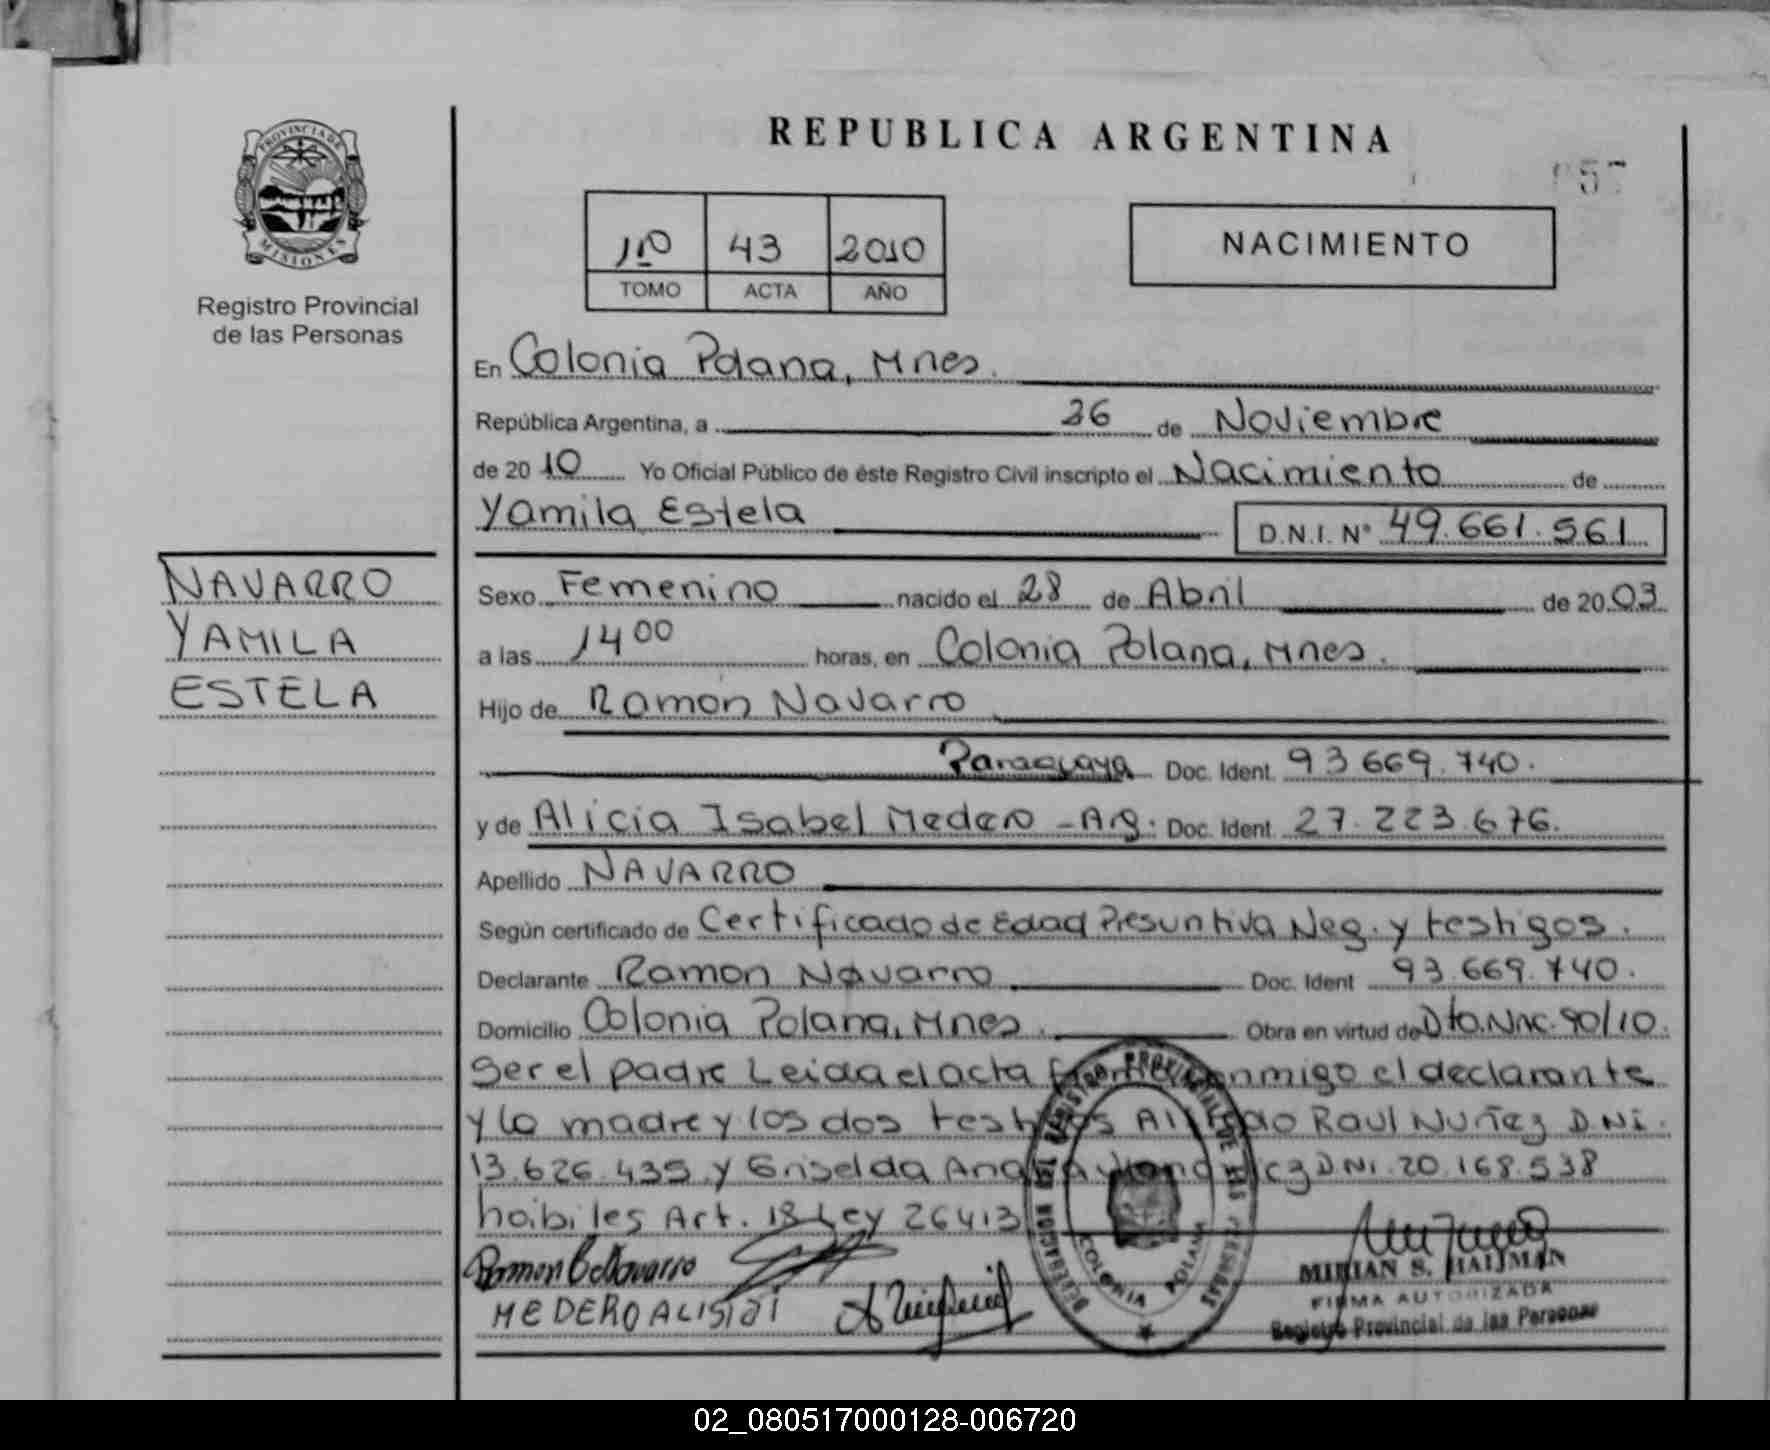 REPUBLICA ARGENTINA
057
PROVINCIA DE
MISIONES
Registro Provincial
de las Personas
1º 43 2010
TOMO ACTA AÑO
NACIMIENTO
En Colonia Polana, Mnes.
República Argentina, a 26 de Noviembre
de 2010 Yo Oficial Público de éste Registro Civil inscripto el Nacimiento de
Yamila Estela D.N.I. Nº 49.661.561
NAVARRO
YAMILA
ESTELA
Sexo Femenino nacido el 28 de Abril de 2003
a las 14 00 horas, en Colonia Polana, Mnes.
Hijo de Ramon Navarro
Paraguaya Doc. Ident. 93.669.740.
y de Alicia Isabel Medero - Arg. Doc. Ident. 27.223.676.
Apellido NAVARRO
Según certificado de Certificado de Edad Presuntiva Neg. y testigos.
Declarante Ramon Navarro Doc. Ident 93.669.740.
Domicilio Colonia Polana, Mnes. Obra en virtud de Dto. Nac. 90/10.
Ser el padre Leida el acta conmigo el declarante
y la madre y los dos testigos Raul Nuñez D.Ni.
13.626.435. y Griselda D.Ni. 20.168.538
habiles Art. 18 Ley 26413
Ramon Navarro
MEDERO ALISIA
DELEGACION DEL REGISTRO PROVINCIAL DE LAS PERSONAS
COLONIA POLANA
MIRIAN S. HAIJMAN
FIRMA AUTORIZADA
Registro Provincial de las Personas
02_080517000128-006720